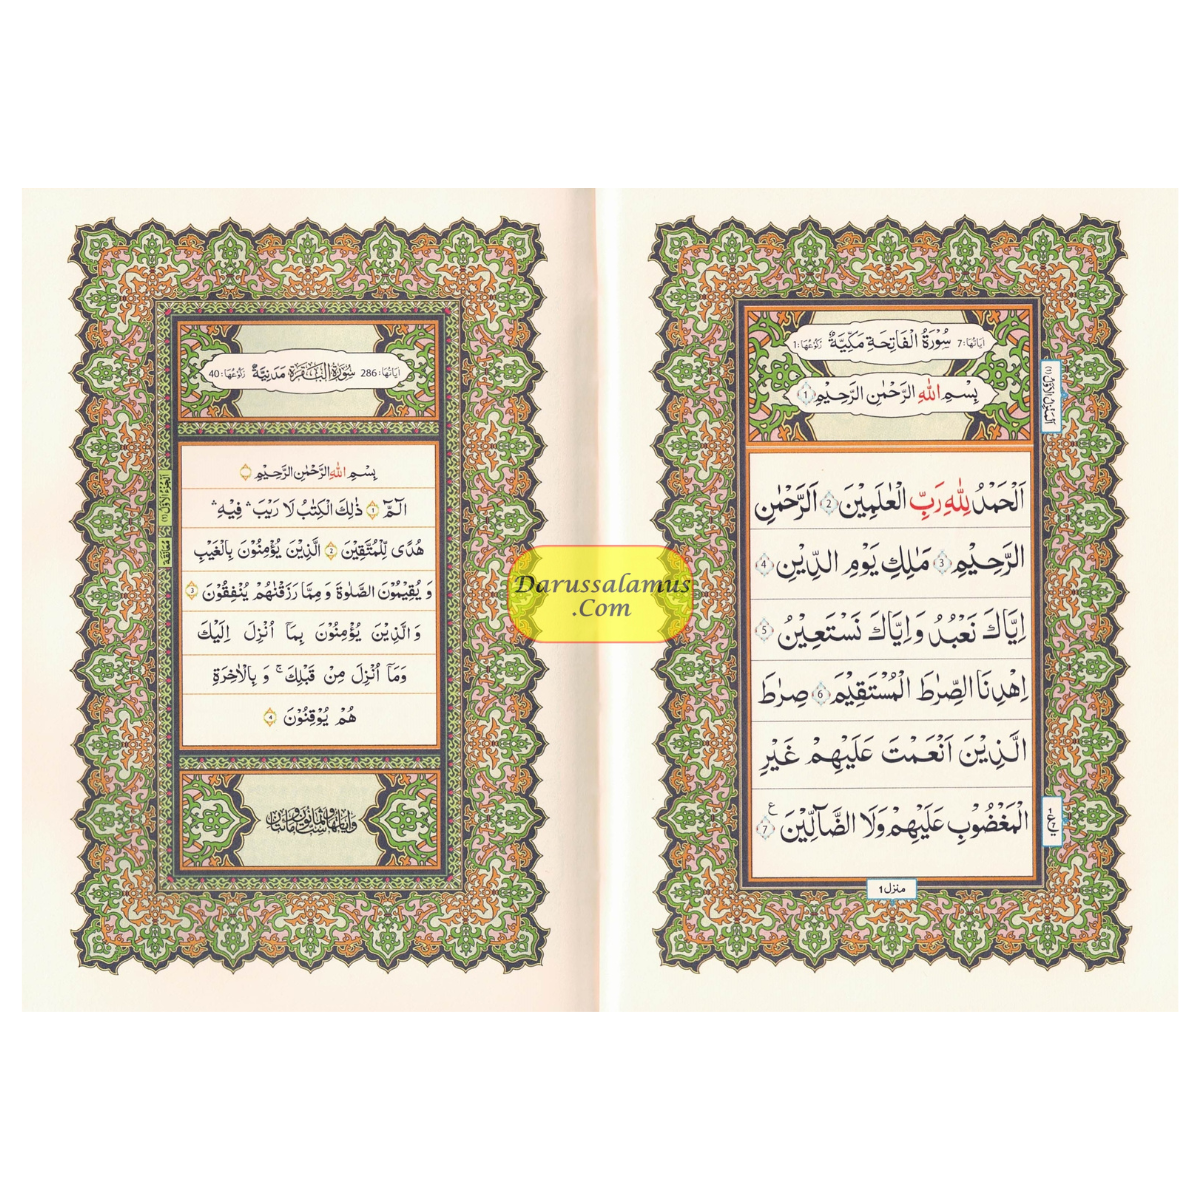 اٰيَاتُهَا: 7 سُوْرَةُ الْفَاتِحَةِ مَكِّيَّةٌ رُكُوْعُهَا: 1
بِسْمِ اللّٰهِ الرَّحْمٰنِ الرَّحِيْمِ 1
اَلْحَمْدُ لِلّٰهِ رَبِّ الْعٰلَمِيْنَ 2 الرَّحْمٰنِ
الرَّحِيْمِ 3 مٰلِكِ يَوْمِ الدِّيْنِ 4
اِيَّاكَ نَعْبُدُ وَ اِيَّاكَ نَسْتَعِيْنُ 5
اِهْدِنَا الصِّرَاطَ الْمُسْتَقِيْمَ 6 صِرَاطَ
الَّذِيْنَ اَنْعَمْتَ عَلَيْهِمْ غَيْرِ
الْمَغْضُوْبِ عَلَيْهِمْ وَلَا الضَّآلِّيْنَ 7
منزل 1
اٰيَاتُهَا: 286 سُوْرَةُ الْبَقَرَةِ مَدَنِيَّةٌ رُكُوْعُهَا: 40
بِسْمِ اللّٰهِ الرَّحْمٰنِ الرَّحِيْمِ
الٓمّٓ ١ ذٰلِكَ الْكِتٰبُ لَا رَيْبَ ۛ فِيْهِ ۛ
هُدًى لِّلْمُتَّقِيْنَ ٢ الَّذِيْنَ يُؤْمِنُوْنَ بِالْغَيْبِ
وَ يُقِيْمُوْنَ الصَّلٰوةَ وَ مِمَّا رَزَقْنٰهُمْ يُنْفِقُوْنَ ٣
وَ الَّذِيْنَ يُؤْمِنُوْنَ بِمَاۤ اُنْزِلَ اِلَيْكَ
وَمَاۤ اُنْزِلَ مِنْ قَبْلِكَ ۚ وَ بِالْاٰخِرَةِ
هُمْ يُوْقِنُوْنَ ٤
Darussalamus
.Com